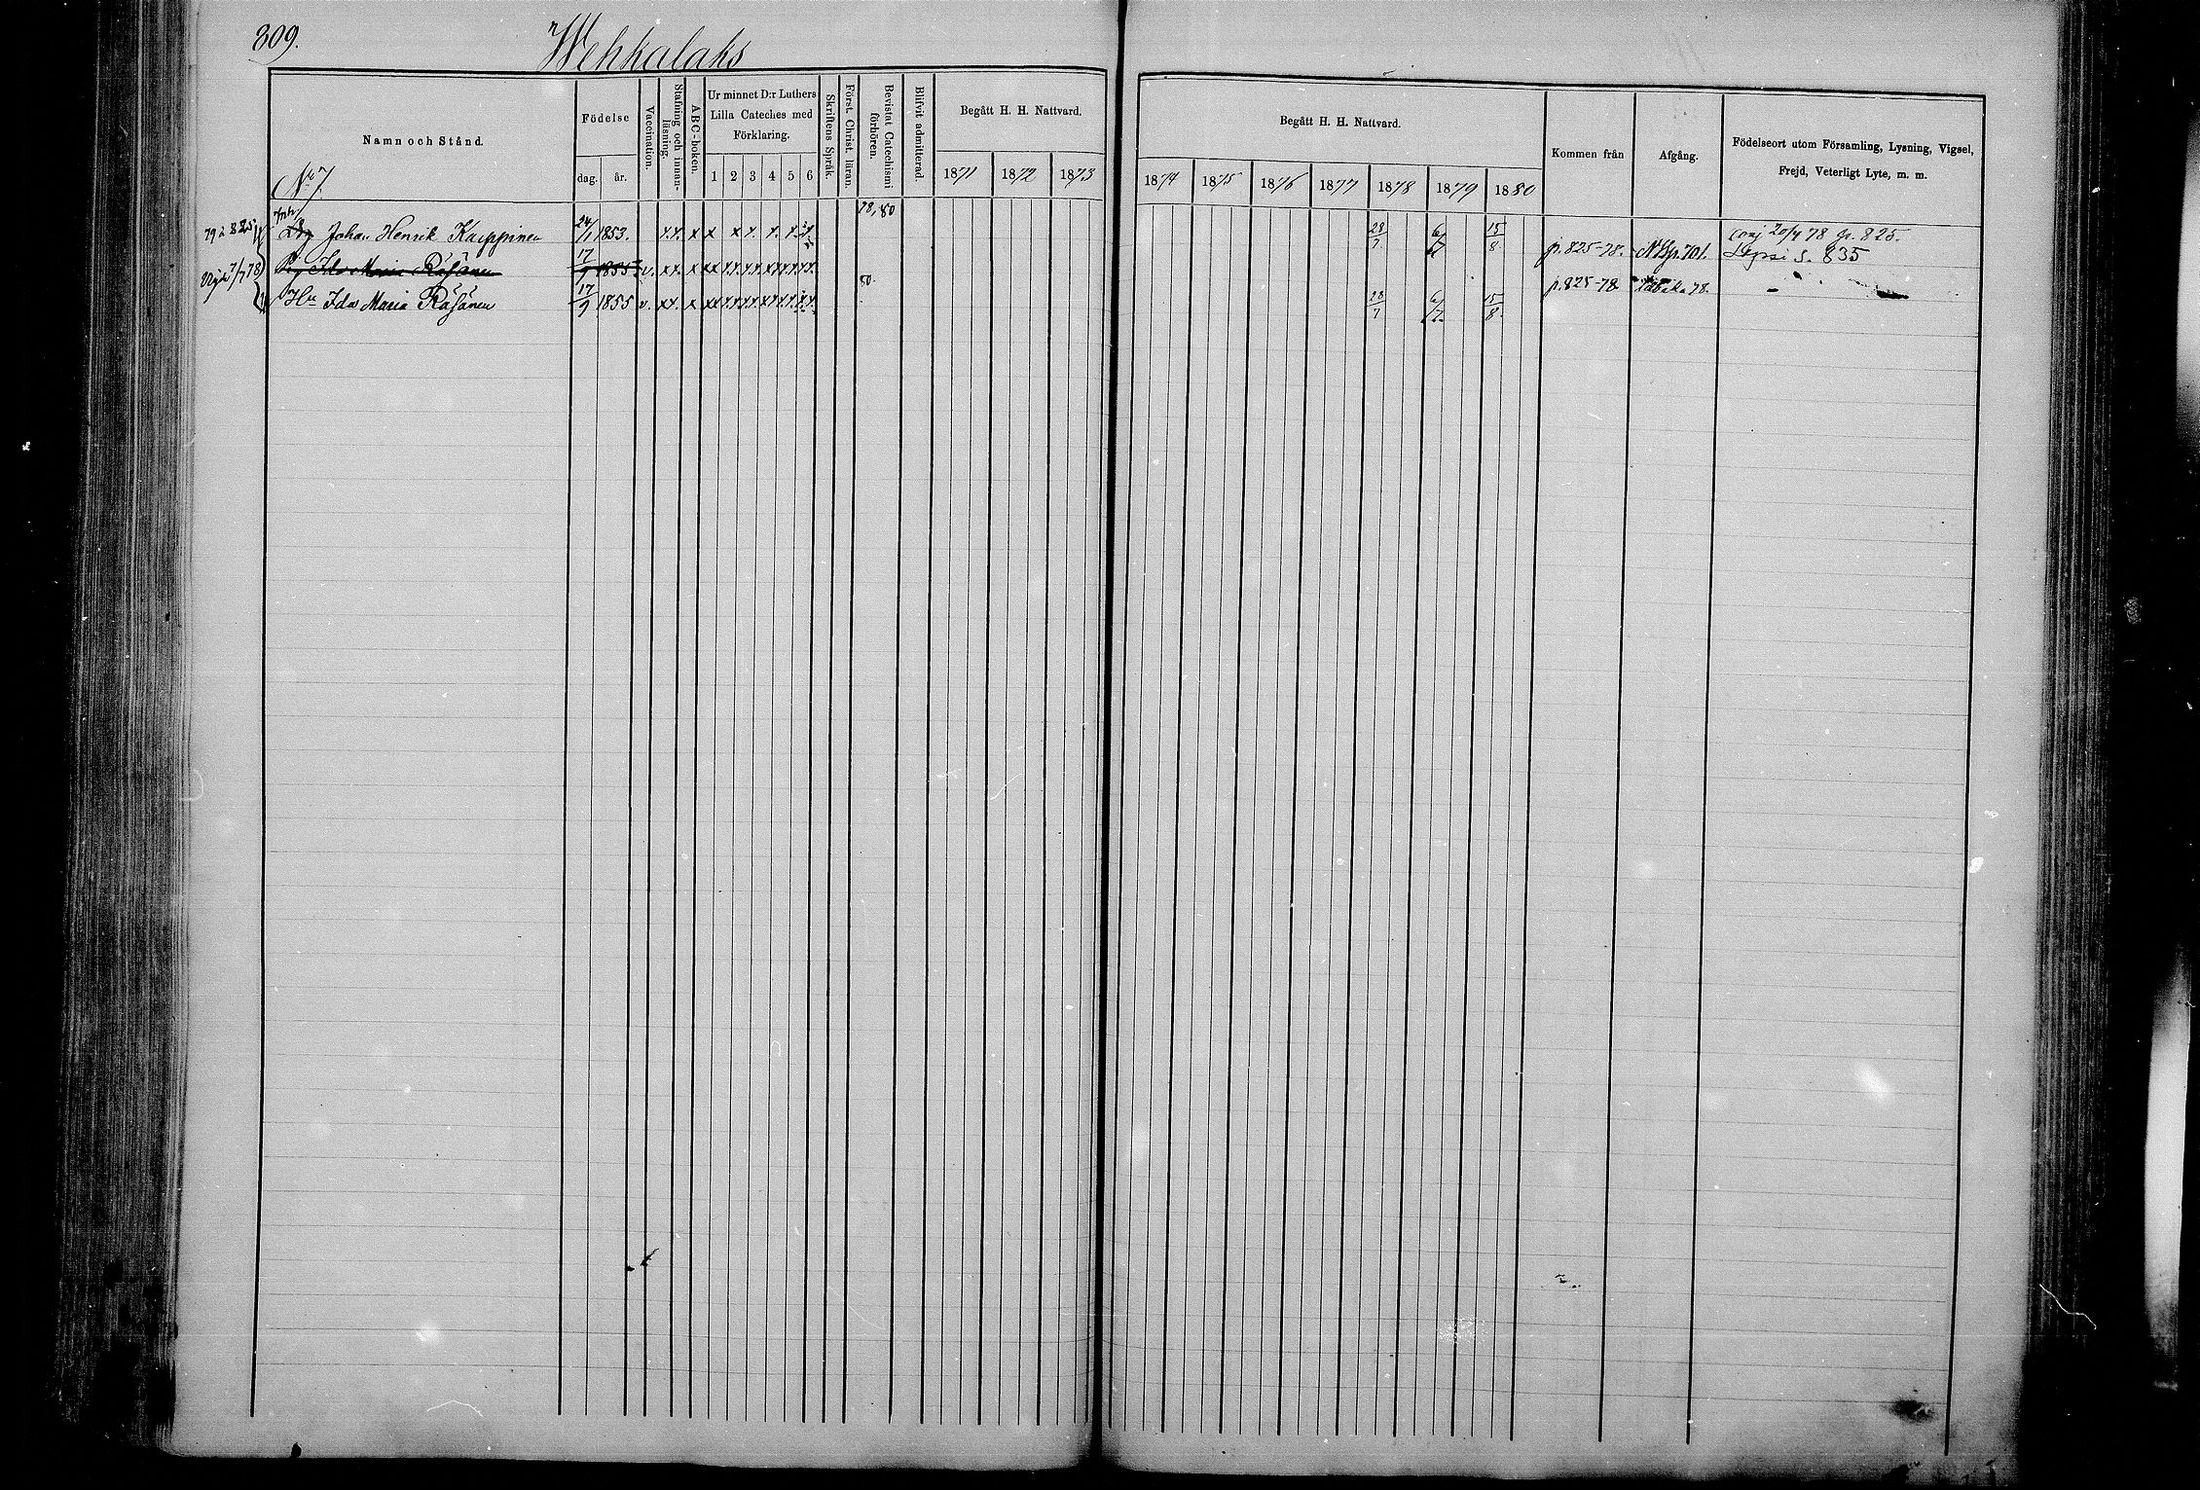 809.
Wehkalaks
Namn och Stånd.
Födelse
dag.
år.
Vaccination.
Stafning och innanläsning.
ABC-boken.
Ur minnet D:r Luthers
Lilla Cateches med
Förklaring.
1 2 3 4 5 6
Skriftens Språk.
Först. Christ. läran.
Bevistat Catechismi förhören.
Blifvit admitterad.
Begått H. H. Nattvard.
1871 1872 1873
Begått H. H. Nattvard.
1874 1875 1876 1877 1878 1879 1880
Kommen från
Afgång.
Födelseort utom Församling, Lysning, Vigsel,
Frejd, Veterligt Lyte, m. m.
No 7.
Inh
78, 80
Drg Johan Henrik Kauppinen 24/1 1853. x x x x x x x x x 28/7 6/7 15/8 p. 825-78. p. 701. conj 20/4 78 p. 825.
S. 835
Pig Ida Maria Räsänen 17/9 1855 v. x x x xx xx xx xx xx xx 80. p. 825-78 78.
Hu Ida Maria Räsänen 17/9 1855 v. x x x xx xx xx xx xx xx 28/7 6/7 15/8
7/7 78